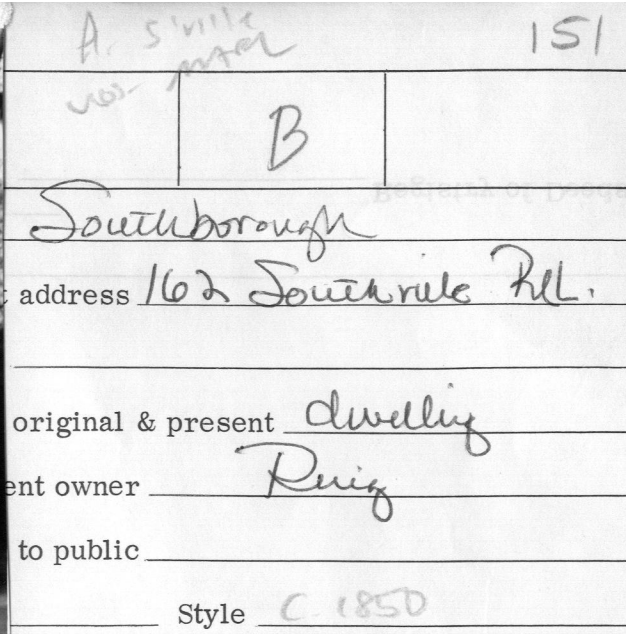 A. S'ville 151
B
Southborough
address 162 Southville Rd.
original & present dwelling
ent owner Ruiz
to public
Style C 1850